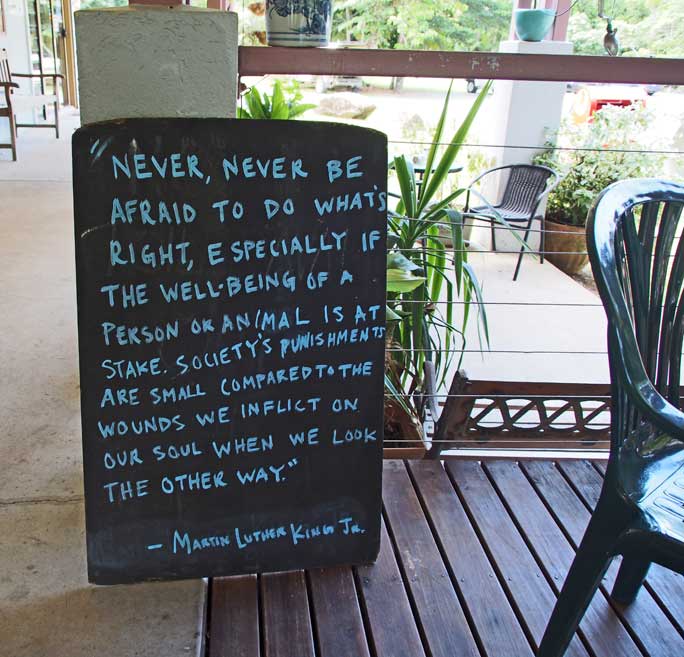 "NEVER, NEVER BE
AFRAID TO DO WHAT'S
RIGHT, ESPECIALLY IF
THE WELL-BEING OF A
PERSON OR ANIMAL IS AT
STAKE. SOCIETY'S PUNISHMENTS
ARE SMALL COMPARED TO THE
WOUNDS WE INFLICT ON
OUR SOUL WHEN WE LOOK
THE OTHER WAY."
- MARTIN LUTHER KING JR.